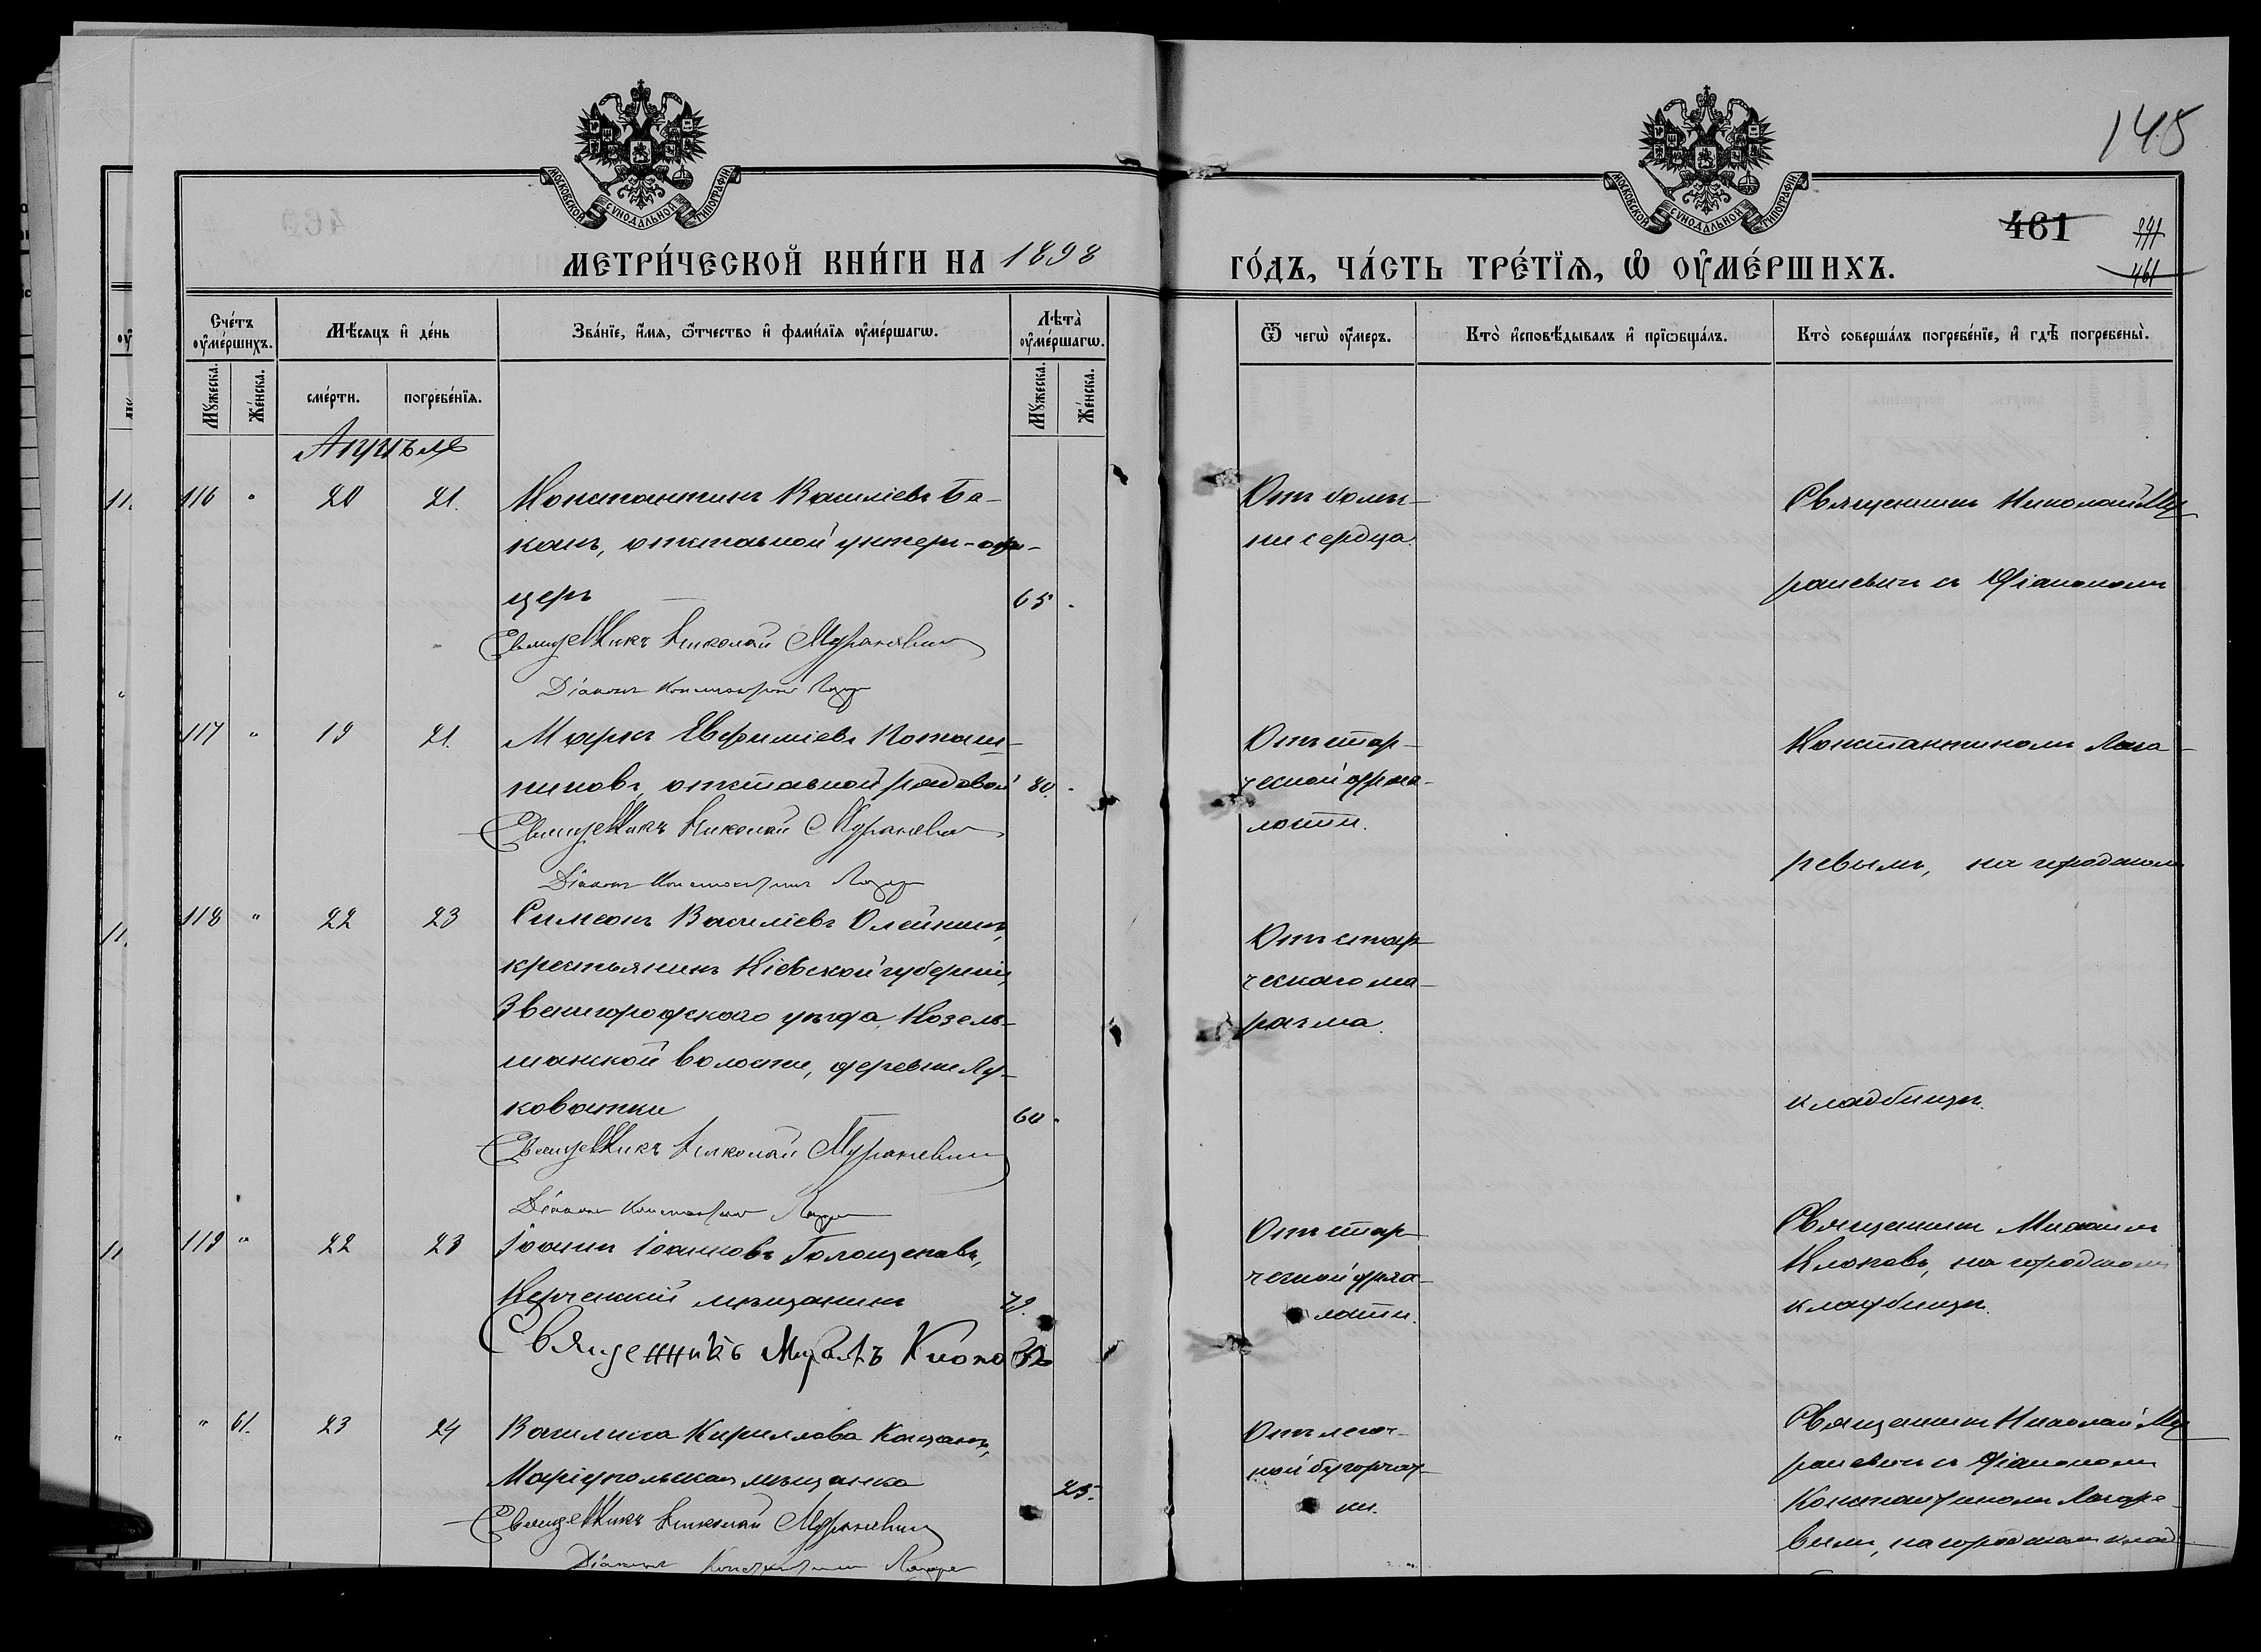 145
МОСКОВСКОЙ СѴНОДАЛЬНОЙ ТИПОГРАФІИ
МОСКОВСКОЙ СѴНОДАЛЬНОЙ ТИПОГРАФІИ
461
391
461
МЕТРИ́ЧЕСКОЙ КНИ́ГИ НА 1898
ГО́ДЪ, ЧА́СТЬ ТРЕ́ТЇѦ, Ѡ҆ ОУ҆МЕ́РШИХЪ.
Сче́тъ оу҆ме́ршихъ.
Мѣ́сяцъ и҆ де́нь
Зва́нїе, и҆́мя, ѻ҆́тчество и҆ фами́лїя оу҆ме́ршагѡ.
Лѣта̀ оу҆ме́ршагѡ.
Ѿ чегѡ̀ оу҆́меръ.
Кто̀ и҆сповѣ́дывалъ и҆ прїѡбща́лъ.
Кто̀ соверша́лъ погребе́нїе, и҆ гдѣ̀ погребены̀.
Мꙋ́жеска.
Же́нска.
сме́рти.
погребе́нїя.
Мꙋ́жеска.
Же́нска.
Апрѣль
116 " 20 21. Константинъ Василіевъ Ба-
канъ, отставной унтеръ-офи-
церъ 65 .
Священникъ Николай Мураневичъ
Діаконъ Константинъ Лазаре
Отъ болѣз-
ни сердца.
Священникъ Николай Му
раневичъ съ Діакономъ
117 " 19 21. Маркъ Евфиміевъ
отставной рядовой 80. .
Священникъ Николай Мураневичъ
Діаконъ Константинъ Лазаре
Отъ стар-
ческой дрях-
лости.
Константиномъ Лаза-
ревымъ, на городскомъ
118 " 22 23 Симеонъ Василіевъ Олейникъ,
крестьянинъ Кіевской губерніи,
Звенигородскаго уѣзда, Козель-
волости, деревни
60 .
Священникъ Николай Мураневичъ
Діаконъ Константинъ Лазаре
Отъ стар
ческаго ма-
разма.
кладбищѣ.
119 " 22 23 Іоаннъ Іоанновъ Голощеповъ,
Керченскій мѣщанинъ 79.
Священникъ Михаилъ Клоповъ
Отъ стар
ческой дрях-
лости.
Священникъ Михаилъ
Клоповъ, на городскомъ
кладбищѣ.
" 61. 23 24 Василиса Кириллова
Маріупольская мѣщанка 25.
Священникъ Николай Мураневичъ
Діаконъ Константинъ Лазаре
Отъ легоч-
ной бугорчат-
ки.
Священникъ Николай Му
раневичъ съ Діакономъ
Константиномъ Лазаре-
вымъ, на городскомъ клад-